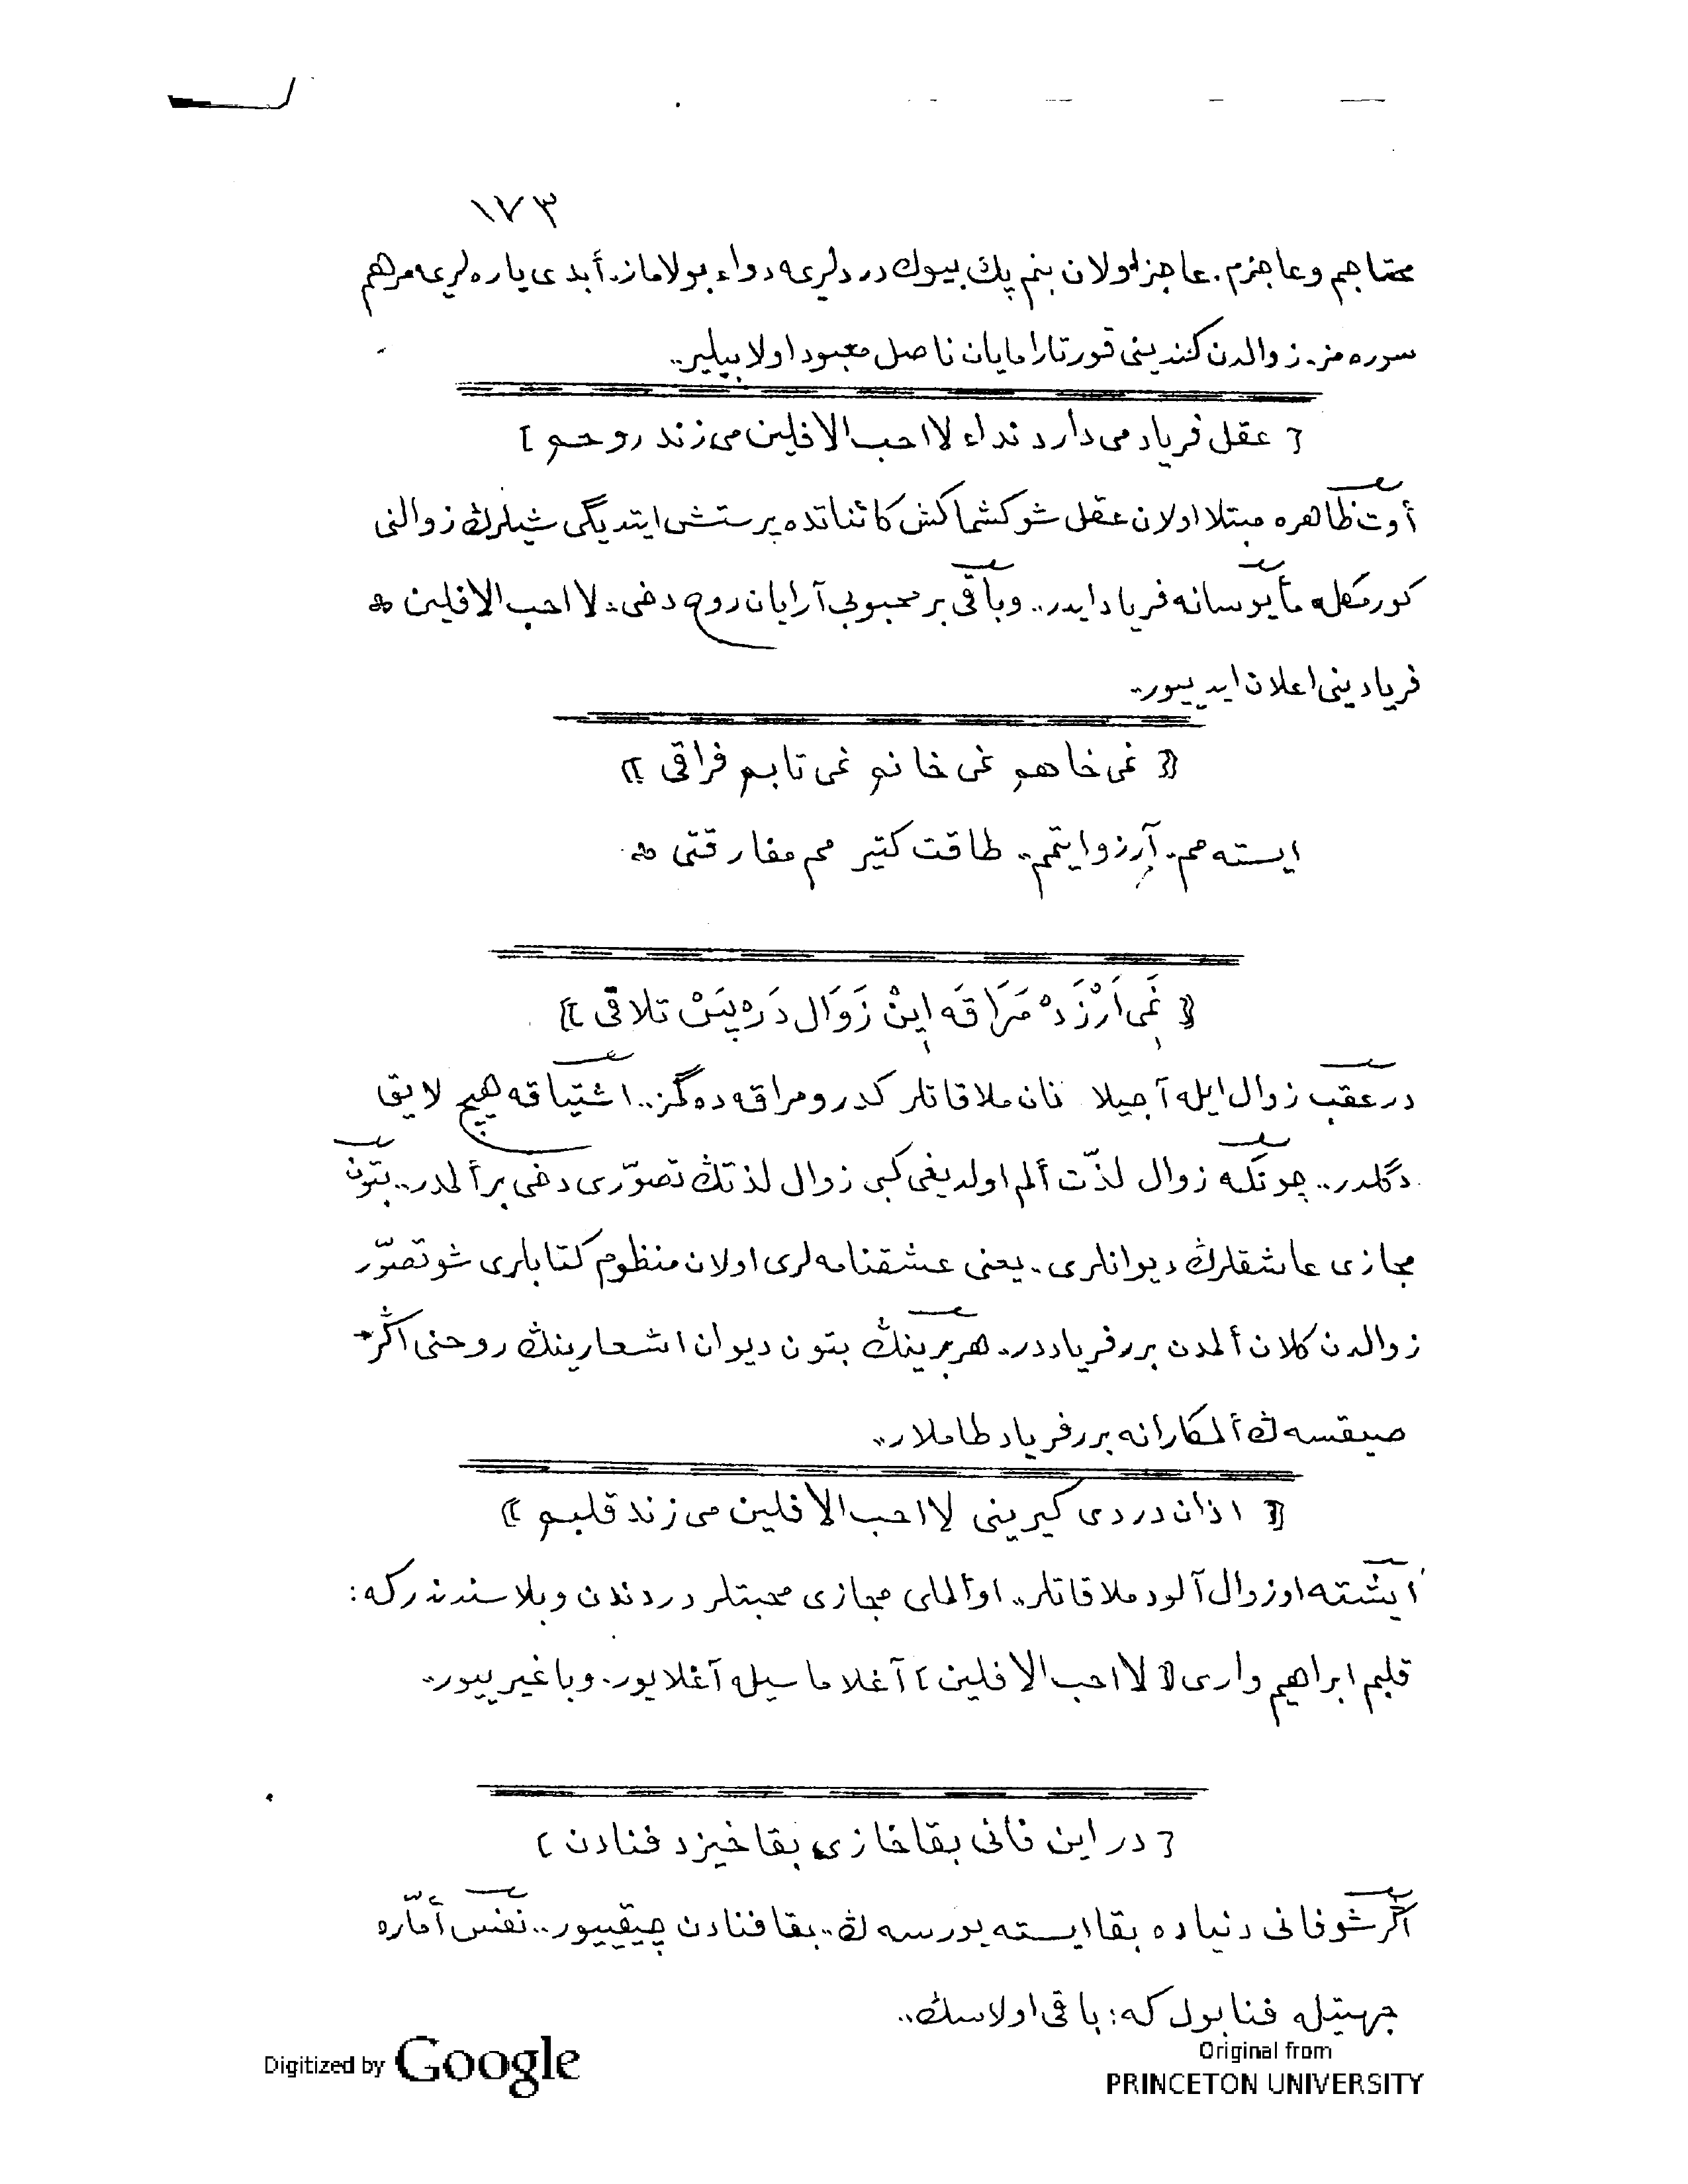 ١٧٣
محتاجم وعاجزم. عاجز اولان بنم پك بيوك دردلريمه دواء بولاماز. أبدى ياره لريمه مرهم
سوره مز. زوالدن كندينى قورتارامايان ناصل معبود اولابيلير..
[ عقل فرياد مى دارد نداء لا احب الافلين مى زند روحم ]
أوت ظاهره مبتلا اولان عقل شو كشماكش كائناتده پرستش ايتديگى شيلرڭ زوالنى
كورمكله مأيوسانه فرياد ايدر.. وباقى بر محبوبى آرايان روح دخى: لا احب الافلين
فريادينى اعلان ايدييور..
[ نمى خاهم نمى خانم نمى تابم فراقى ]
ايسته مم. آرزو ايتمم.. طاقت كتير مم مفارقتى
[ نَمِى اَرْزَدْه مَرَاقَه اِينْ زَوَال دَرْپَسْ تلاقى ]
درعقب زوال ايله آجيلا نان ملاقاتلر كدر ومراقه ده گمز.. اشتياقه هيچ لايق
دگلدر.. چونكه زوال لذّت ألم اولديغى كبى زوال لذتڭ تصوّرى دخى بر ألمدر.. بتون
مجازى عاشقلرڭ ديوانلرى. يعنى عشقنامه لرى اولان منظوم كتابلرى شو تصوّر
زوالدن كلان ألمدن برر فرياددر. هر برينڭ بتون ديوان اشعارينڭ روحنى اگر
صيقسه ڭ ألمكارانه برر فرياد طاملار..
[ اذان دردى گيرينى لا احب الافلين مى زند قلبم ]
ايشته او زوال آلود ملاقاتلر.. او ألملى مجازى محبتلر دردندن وبلاسندندركه:
قلبم ابراهيم وارى [ لا احب الافلين ] آغلاماسيله آغلايور. وباغيرييور..
[ در اين فانى بقا خازى بقا خيزد فنادن ]
اگر شو فانى دنياده بقا ايسته يورسه ڭ.. بقا فنادن چيقييور.. نفس أمّاره
جهتيله فنا بول كه: باقى اولاسڭ..
Digitized by Google
Original from
PRINCETON UNIVERSITY